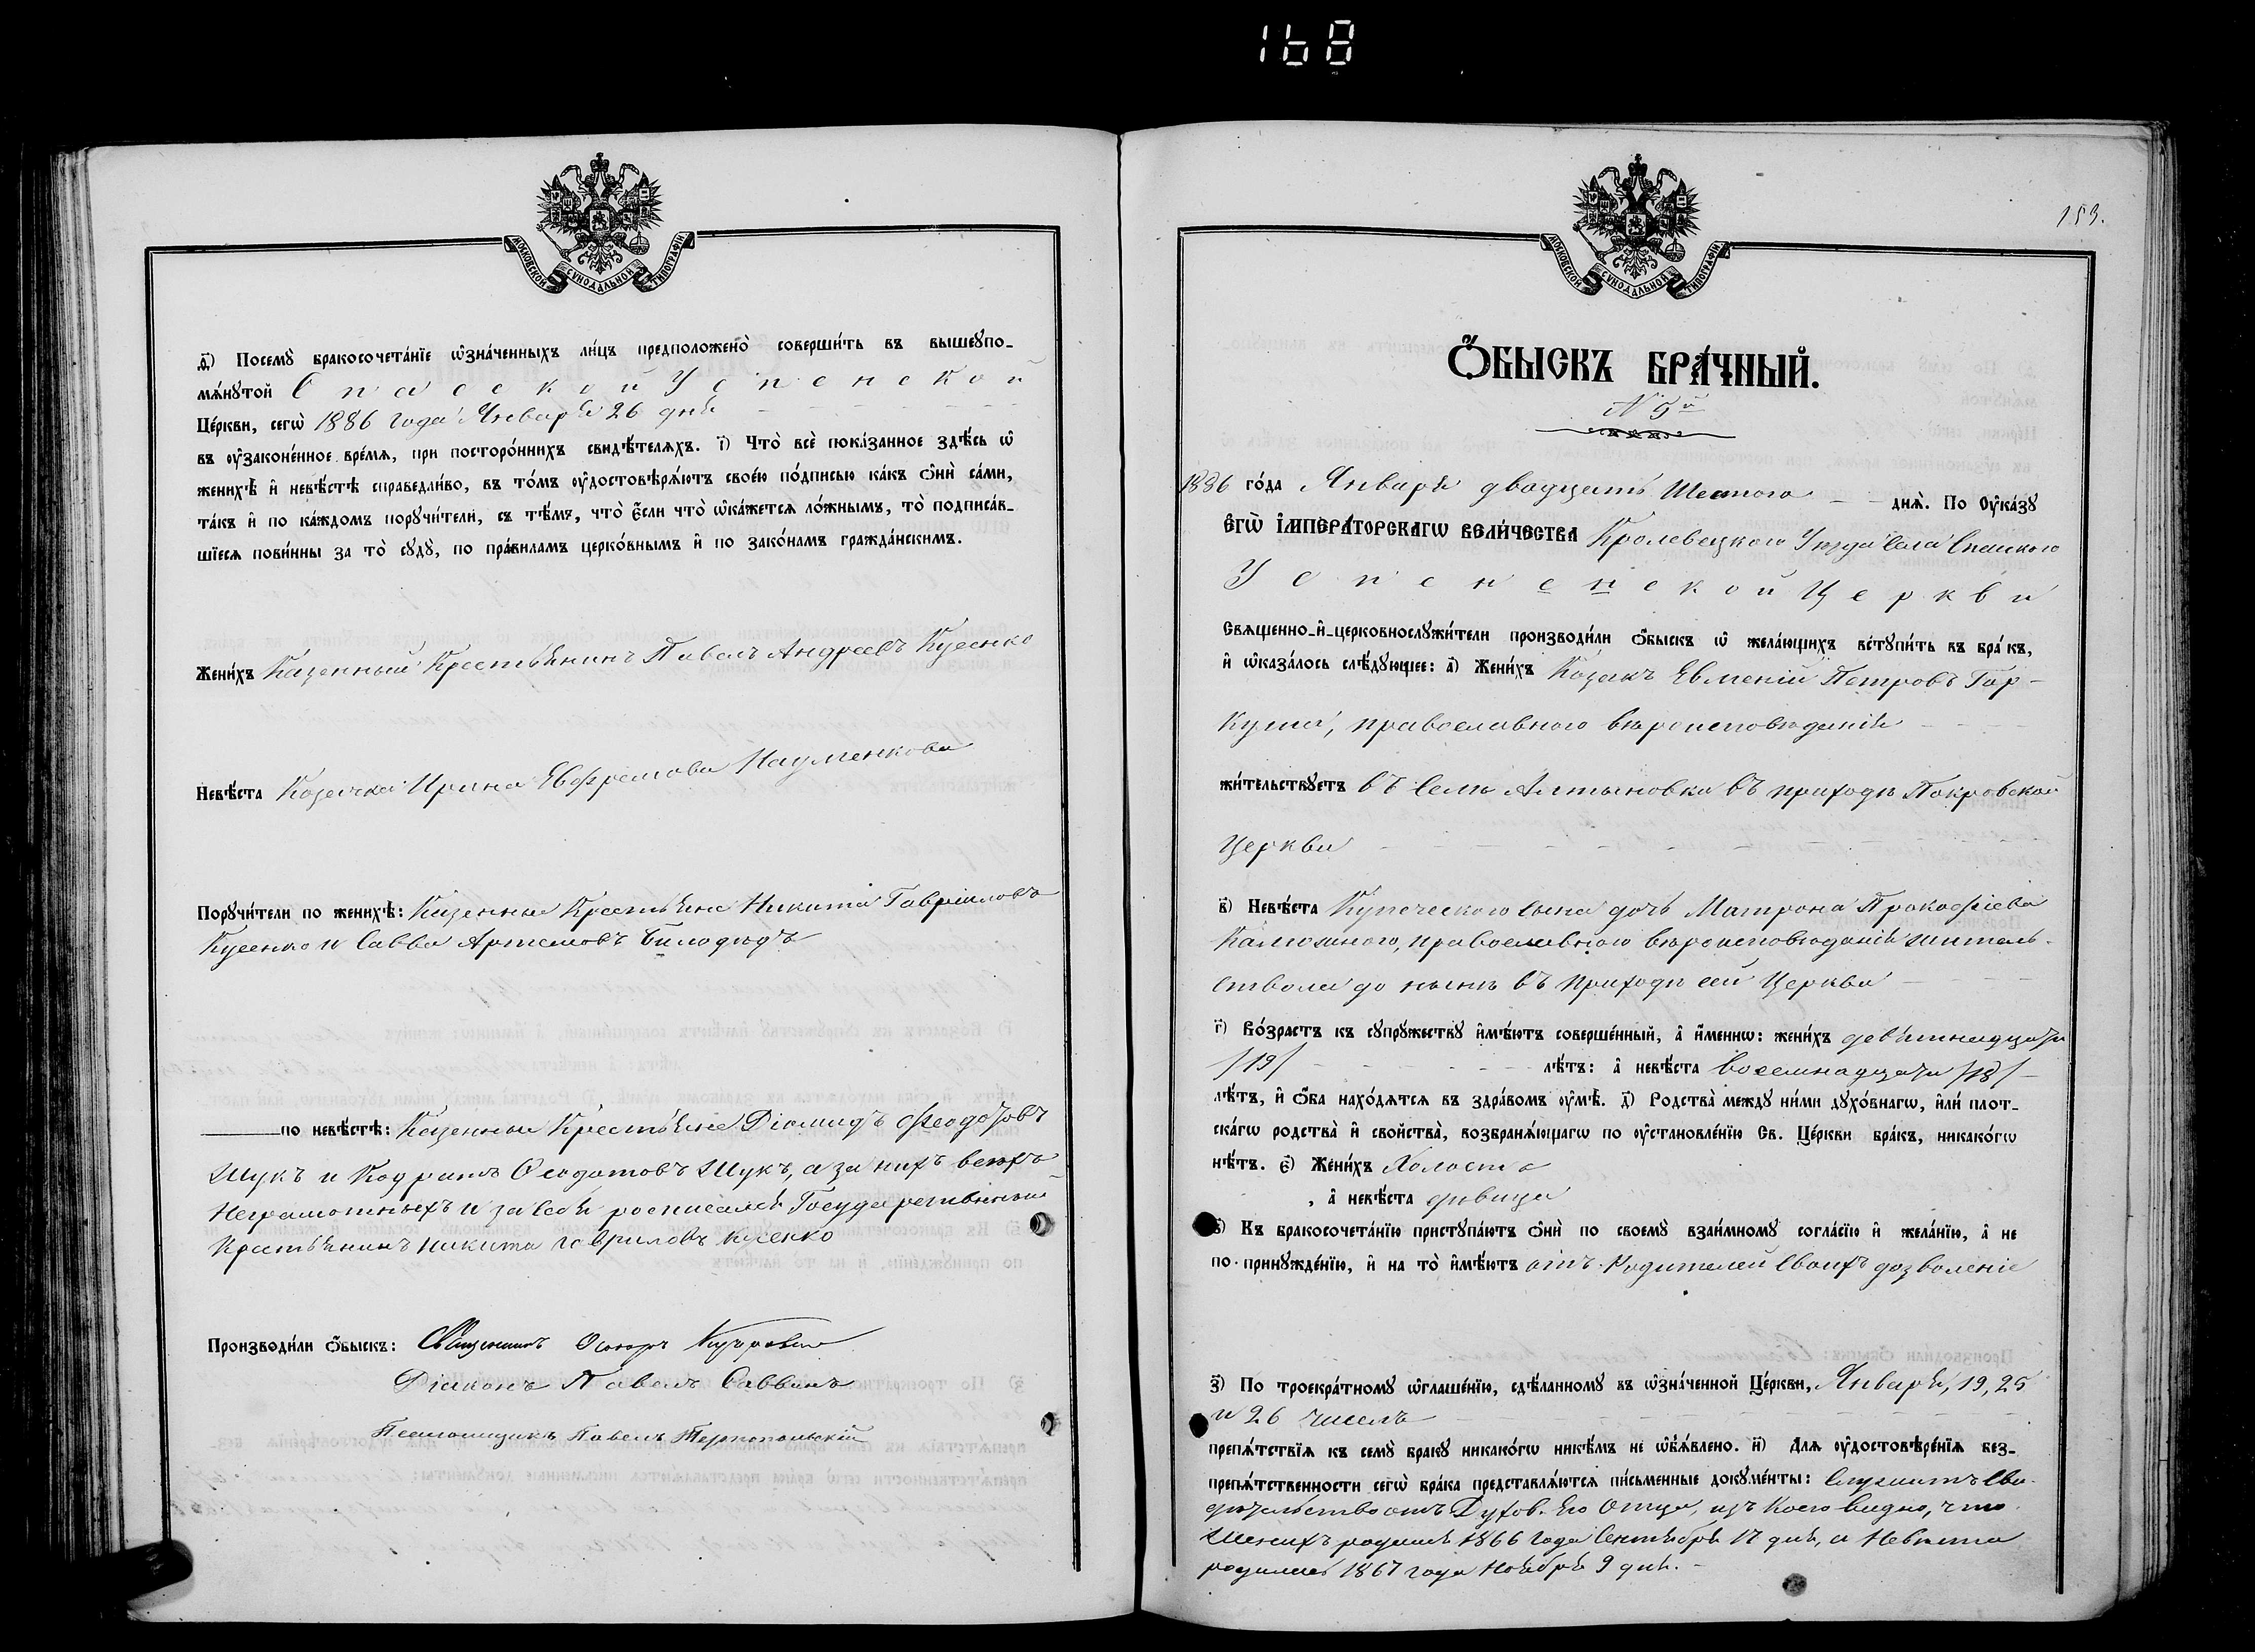 168
МОСКОВСКОЙ СУНОДАЛЬНОЙ ТИПОГРАФІИ
д҃) Посемꙋ̀ бракосочета́нїе ѡ҆зна́ченныхъ ли́цъ предположено̀ соверши́ть въ вышеꙋпо-
мѧ́нꙋтой Спасской Успенской
Це́ркви, сегѡ̀ 1886 года Января 26 дня
въ ᲂу҆законе́нное вре́мѧ, при посторо́ннихъ свидѣ́телѧхъ. і҃) Что̀ всѐ пока́занное здѣ́сь ѡ҆
женихѣ̀ и҆ невѣ́стѣ справедли́во, въ то́мъ ᲂу҆достовѣрѧ́ютъ свое́ю по́дписью ка́къ ѻ҆нѝ са́ми,
та́къ и҆ по ка́ждомъ порꙋчи́тели, съ тѣ́мъ, что̀ є҆́сли что̀ ѡ҆ка́жетсѧ ло́жнымъ, то̀ подписа́в-
шїесѧ пови́нны за то̀ сꙋдꙋ̀, по пра́виламъ церко́внымъ и҆ по зако́намъ гражда́нскимъ.
Жени́хъ Казенный Крестьянинъ Павелъ Андреевъ Кусенко
Невѣ́ста Козачка Ирина Евфремова Науменкова
Порꙋчи́тели по женихѣ̀: Казенные Крестьяне Никита Гавріиловъ
Кусенко и Савва Артемовъ Билодѣдъ
по невѣ́стѣ: Казенные Крестьяне Діомидъ Феодотовъ
Шукъ и Кодратъ Феодотовъ Шукъ, а за нихъ всехъ
Неграмотныхъ и за себя росписался Государственный
Крестьянинъ Никита Гавриловъ Кусенко
Производи́ли ѻ҆́быскъ: Священникъ
Діаконъ Павелъ Саввинъ
Псаломщикъ Павелъ Тернопольскій
153.
МОСКОВСКОЙ СУНОДАЛЬНОЙ ТИПОГРАФІИ
Ѻ҆́БЫСКЪ БРА́ЧНЫЙ.
№ 5й
1886 го́да Января двадцать Шестого днѧ̀. По ᲂу҆ка́зꙋ
Є҆гѡ̀ І҆МПЕРА́ТОРСКАГѠ ВЕЛИ́ЧЕСТВА Кролевецкого Уезда Села Спаского
Успененской Церкви
Свѧщенно-и҆-церковнослꙋжи́тели производи́ли ѻ҆́быскъ ѡ҆ жела́ющихъ встꙋпи́ть въ бра́къ,
и҆ ѡ҆каза́лось слѣ́дꙋющее: а҃) Жени́хъ Козакъ Евмений Петровъ Гар-
куша, православного вѣроисповѣданія
жи́тельствꙋетъ въ Селѣ Алтыновка въ приходѣ Покровской
Церкви
в҃) Невѣ́ста Купеческого сына дочь Матрона Прокофіева
Калюжного, православного вѣроисповѣданія житель-
ствовала до нынѣ въ приходѣ сей Церкви
г҃) Во́зрастъ къ сꙋпрꙋ́жествꙋ и҆мѣ́ютъ соверше́нный, а҆ и҆́меннѡ: жени́хъ девятнадцати
/19/ лѣ́тъ: а҆ невѣ́ста восемнадцати /18/
лѣ́тъ, и҆ ѻ҆́ба нахо́дѧтсѧ въ здра́вомъ ᲂу҆мѣ̀. д҃) Родства̀ междꙋ ни́ми дꙋхо́внагѡ, и҆лѝ плот-
ска́гѡ родства̀ и҆ свойства̀, возбранѧ́ющагѡ по ᲂу҆становле́нїю Св. Це́ркви бра́къ, никако́гѡ
нѣ́тъ. є҃) Жени́хъ Холостъ
, а҆ невѣ́ста дѣвица
ѕ҃) Къ бракосочета́нїю пристꙋпа́ютъ ѻ҆нѝ по своемꙋ̀ взаи́мномꙋ согла́сїю и҆ жела́нїю, а҆ не
по принꙋжде́нїю, и҆ на то̀ и҆мѣ́ютъ отъ Родителей Своихъ дозволеніе
з҃) По троекра́тномꙋ ѡ҆глаше́нїю, сдѣ́ланномꙋ въ ѡ҆зна́ченной Це́ркви, Января, 19, 25
и 26 числъ
препѧ́тствїѧ къ семꙋ̀ бракꙋ никако́гѡ никѣ́мъ не ѡ҆б̾ѧ́влено. и҃) Длѧ ᲂу҆достовѣре́нїѧ без-
препѧ́тственности сегѡ̀ бра́ка представлѧ́ютсѧ пи́сьменные докꙋме́нты: Служитъ Сви-
дѣтельство отъ Духов. Его Отца, изъ Коего видно, что
Женихъ родился 1866 года Сентября 17 дня, а Невѣста
родилась 1867 года Ноября 9 дня.